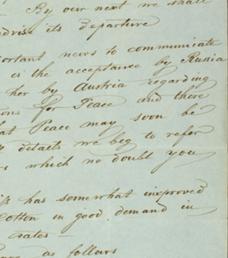 By our next we shall
advise its departure
portant news to communicate
is the acceptance by Russia
her by Austria regarding
ions for Peace and there
at Peace may soon be
details we beg to refer
s which no doubt you
has somewhat improved
Cotton in good demand in
rates —
as follows